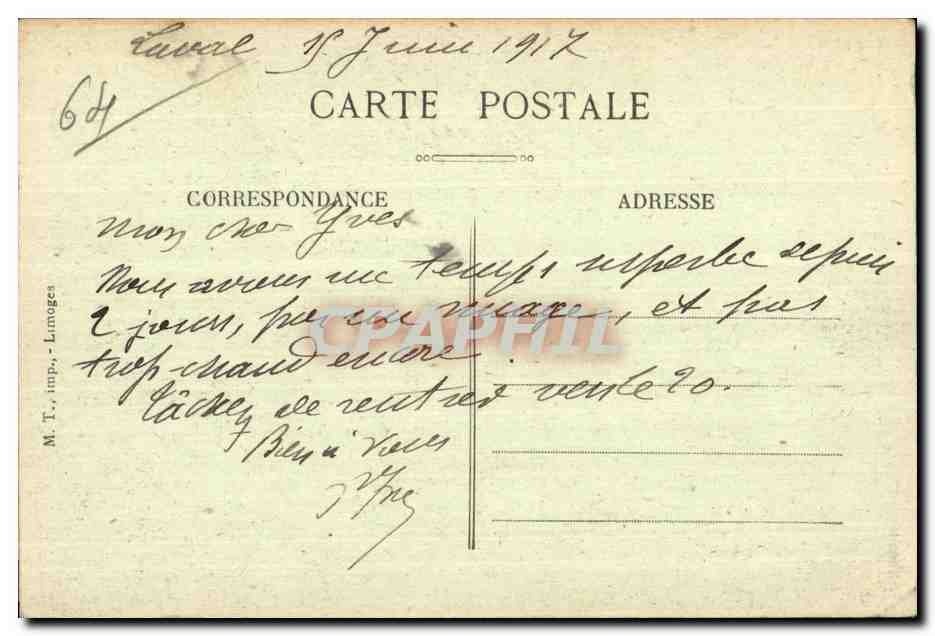 Laval 15 Juin 1917
64
CARTE POSTALE
CORRESPONDANCE
ADRESSE
Mon cher Yves
Nous avons un temps superbe depuis
2 jours, pas un nuage, et pas
trop chaud encore.
Tâchez de rentrer vers le 20.
Bien à vous
M. T., imp., - Limoges
CPAPHIL